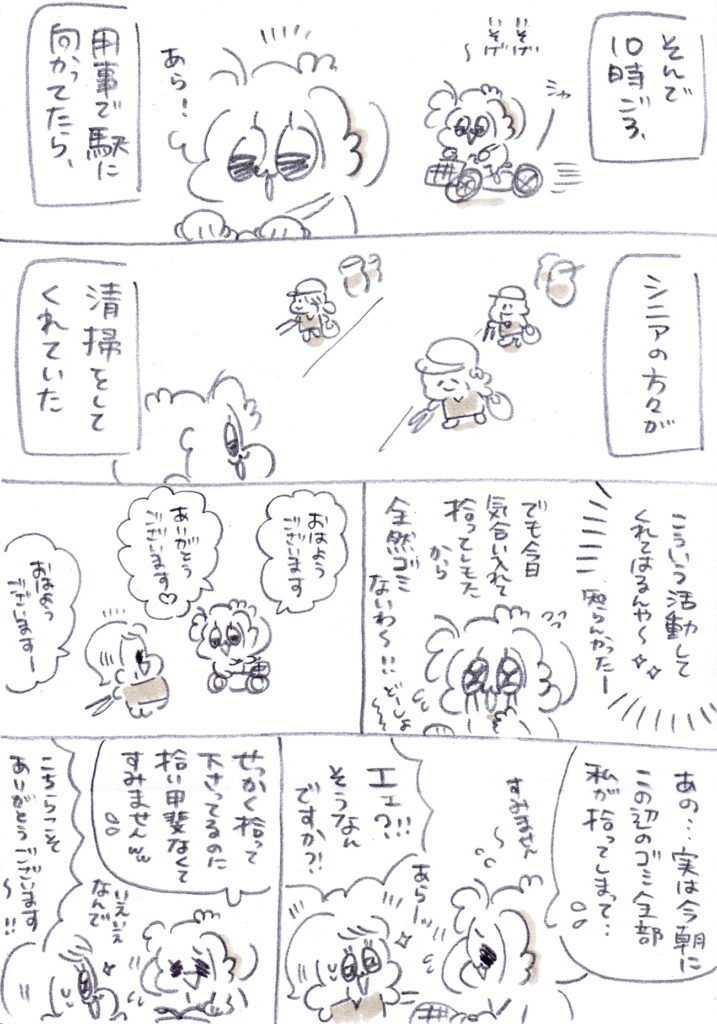 そんで
10時ごろ、
いそげ
いそげ
〜
シャ
あら！
用事で駅に
向かってたら、
シニアの方々が
清掃をして
くれていた
こういう活動して
くれてはるんや〜
知らんかったー
でも今日
気合い入れて
拾ってしもた
から
全然ゴミ
ないわ〜!!
どーしよ
おはよう
ございます
ありがとう
ございます♡
おはよう
ございますー
あの…実は今朝に
この辺のゴミ全部
私が拾ってしまって…
すみません
あらーッ
エェ?!!
そうなん
ですか?!
せっかく拾って
下さってるのに
拾い甲斐なくて
すみませんww
いえいえ
なんで
こちらこそ
ありがとうございます
〜!!